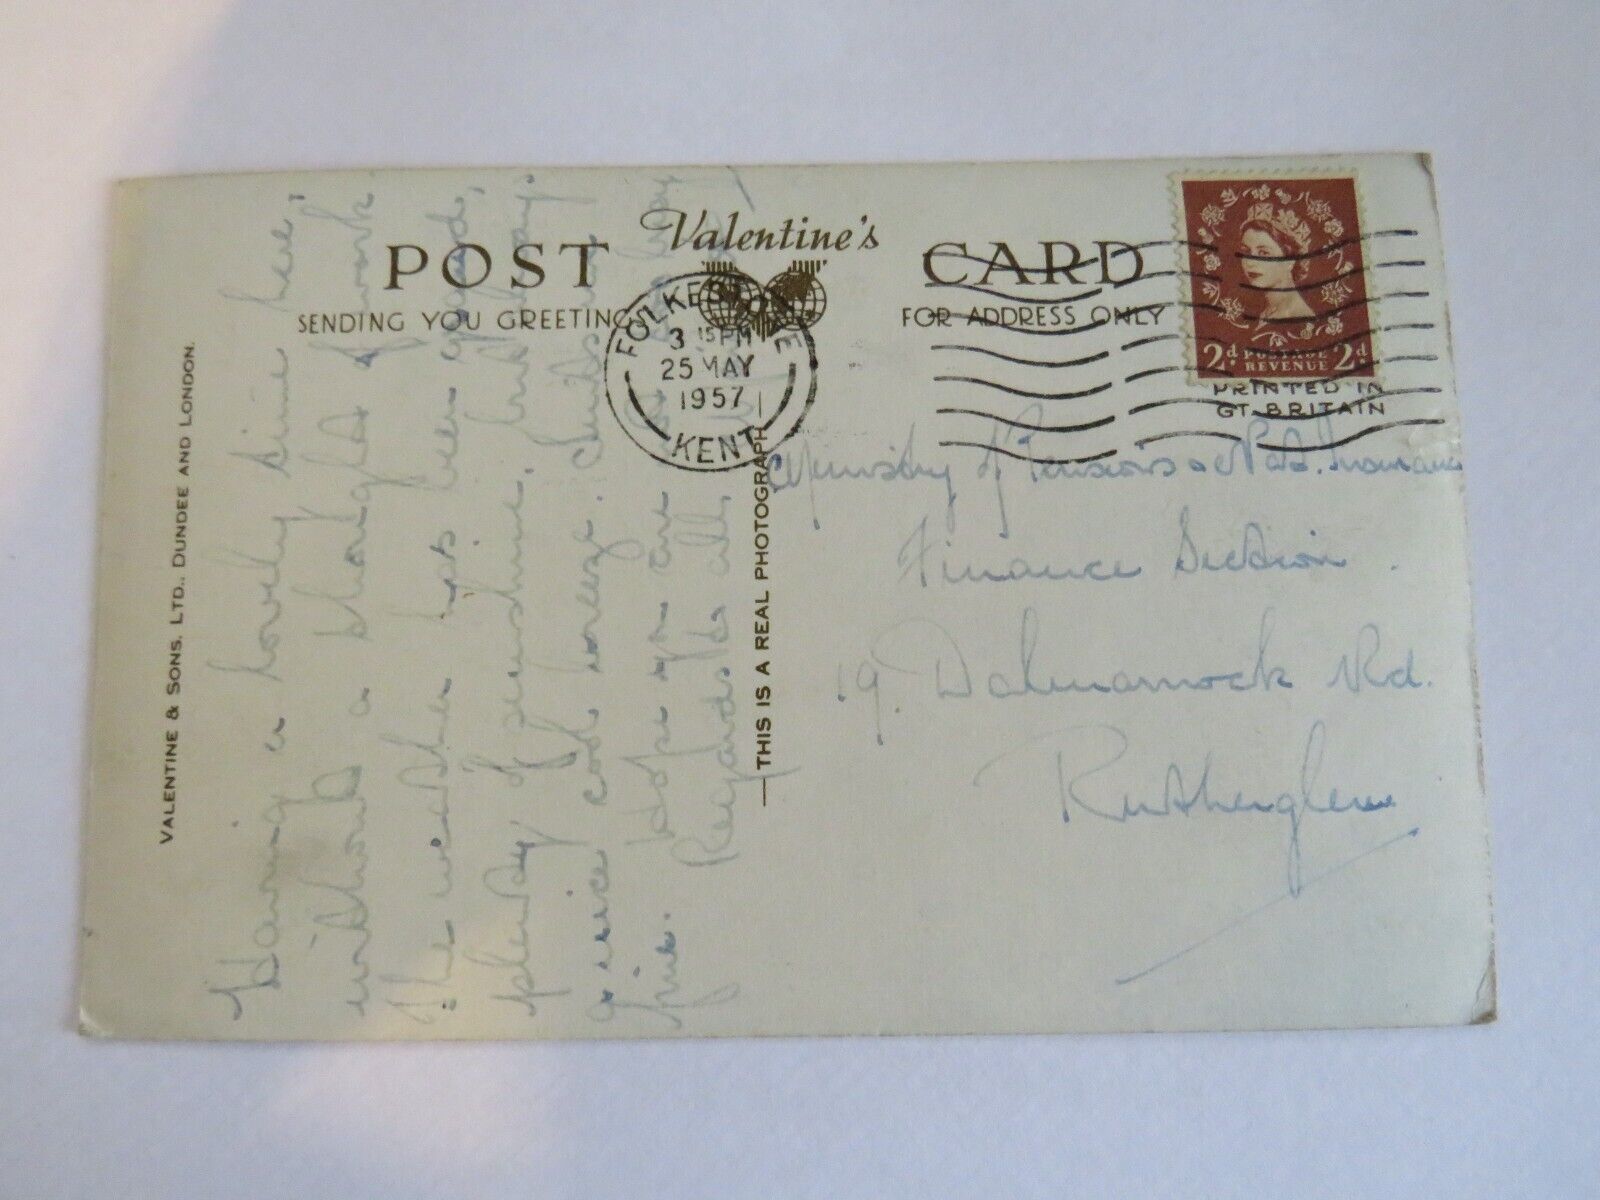 POST Valentine's CARD
SENDING YOU GREETINGS
FOR ADDRESS ONLY
FOLKESTONE
3 15 PM
25 MAY
1957
KENT
2d POSTAGE 2d
REVENUE
PRINTED IN
GT. BRITAIN
VALENTINE & SONS. LTD., DUNDEE AND LONDON.
THIS IS A REAL PHOTOGRAPH
Having a lovely time here,
without a thought of work.
The weather has been good,
plenty of sunshine, but always
a nice cool breeze.
Hope you are
fine. Regards to all,
Ministry of Pensions & Natl. Insurance
Finance Section
19. Dalmarnock Rd.
Rutherglen